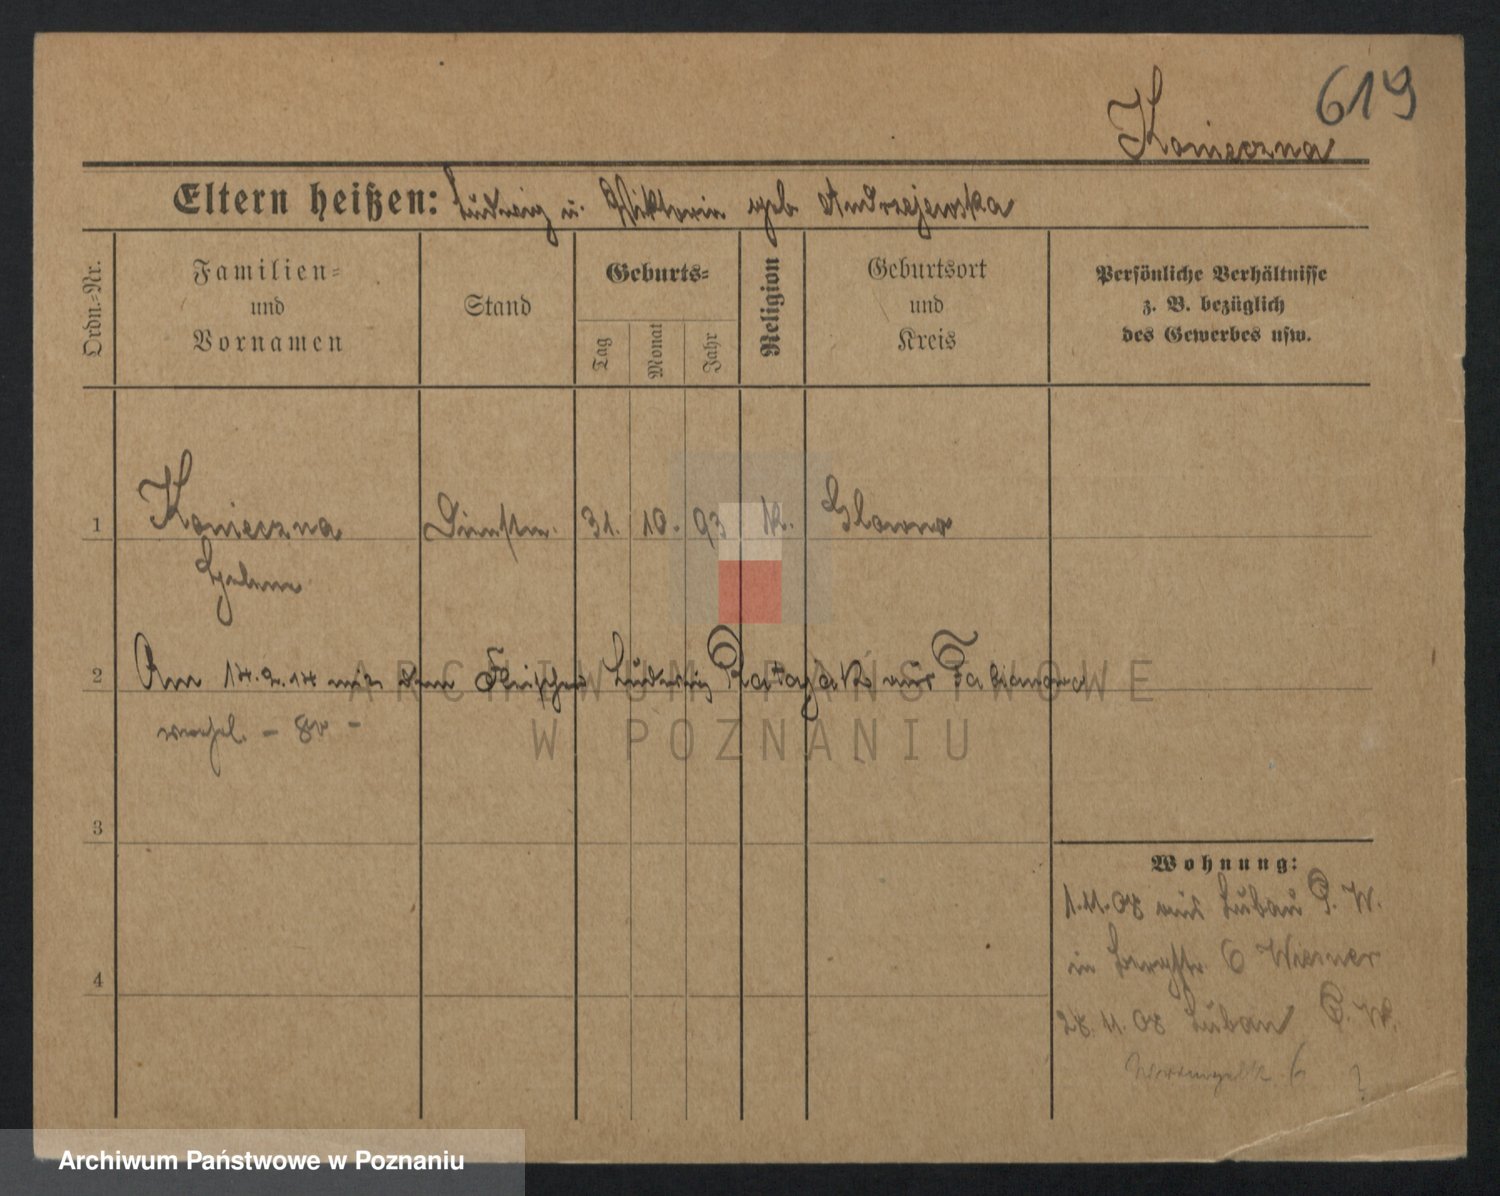 619
Konieczna
Eltern heißen: Ludwig u. Wiktoria geb. Andrzejewska
Ordn.=Nr.
Familien=
und
Vornamen
Stand
Geburts=
Tag
Monat
Jahr
Religion
Geburtsort
und
Kreis
Persönliche Verhältnisse
z. B. bezüglich
des Gewerbes usw.
1 Konieczna Dienstm. 31. 10. 93 K. Glowno
Helene
2 Am 14.2.14 mit dem Fleischer Ludwig Ratajczak aus Fabianowo
verehel.
3
4
Wohnung:
1.11.08 aus Luban P. W.
in 6 Wiesner
28.11.08 Luban P. W.
6
ARCHIWUM PAŃSTWOWE
W POZNANIU
Archiwum Państwowe w Poznaniu